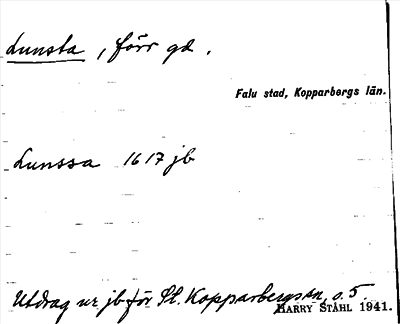 Lunsta, förr gd.
Falu stad, Kopparbergs län.
Lunssa 1617 jb
Utdrag ur jb för St. Kopparbergs sn, s. 5.
HARRY STÅHL 1941.